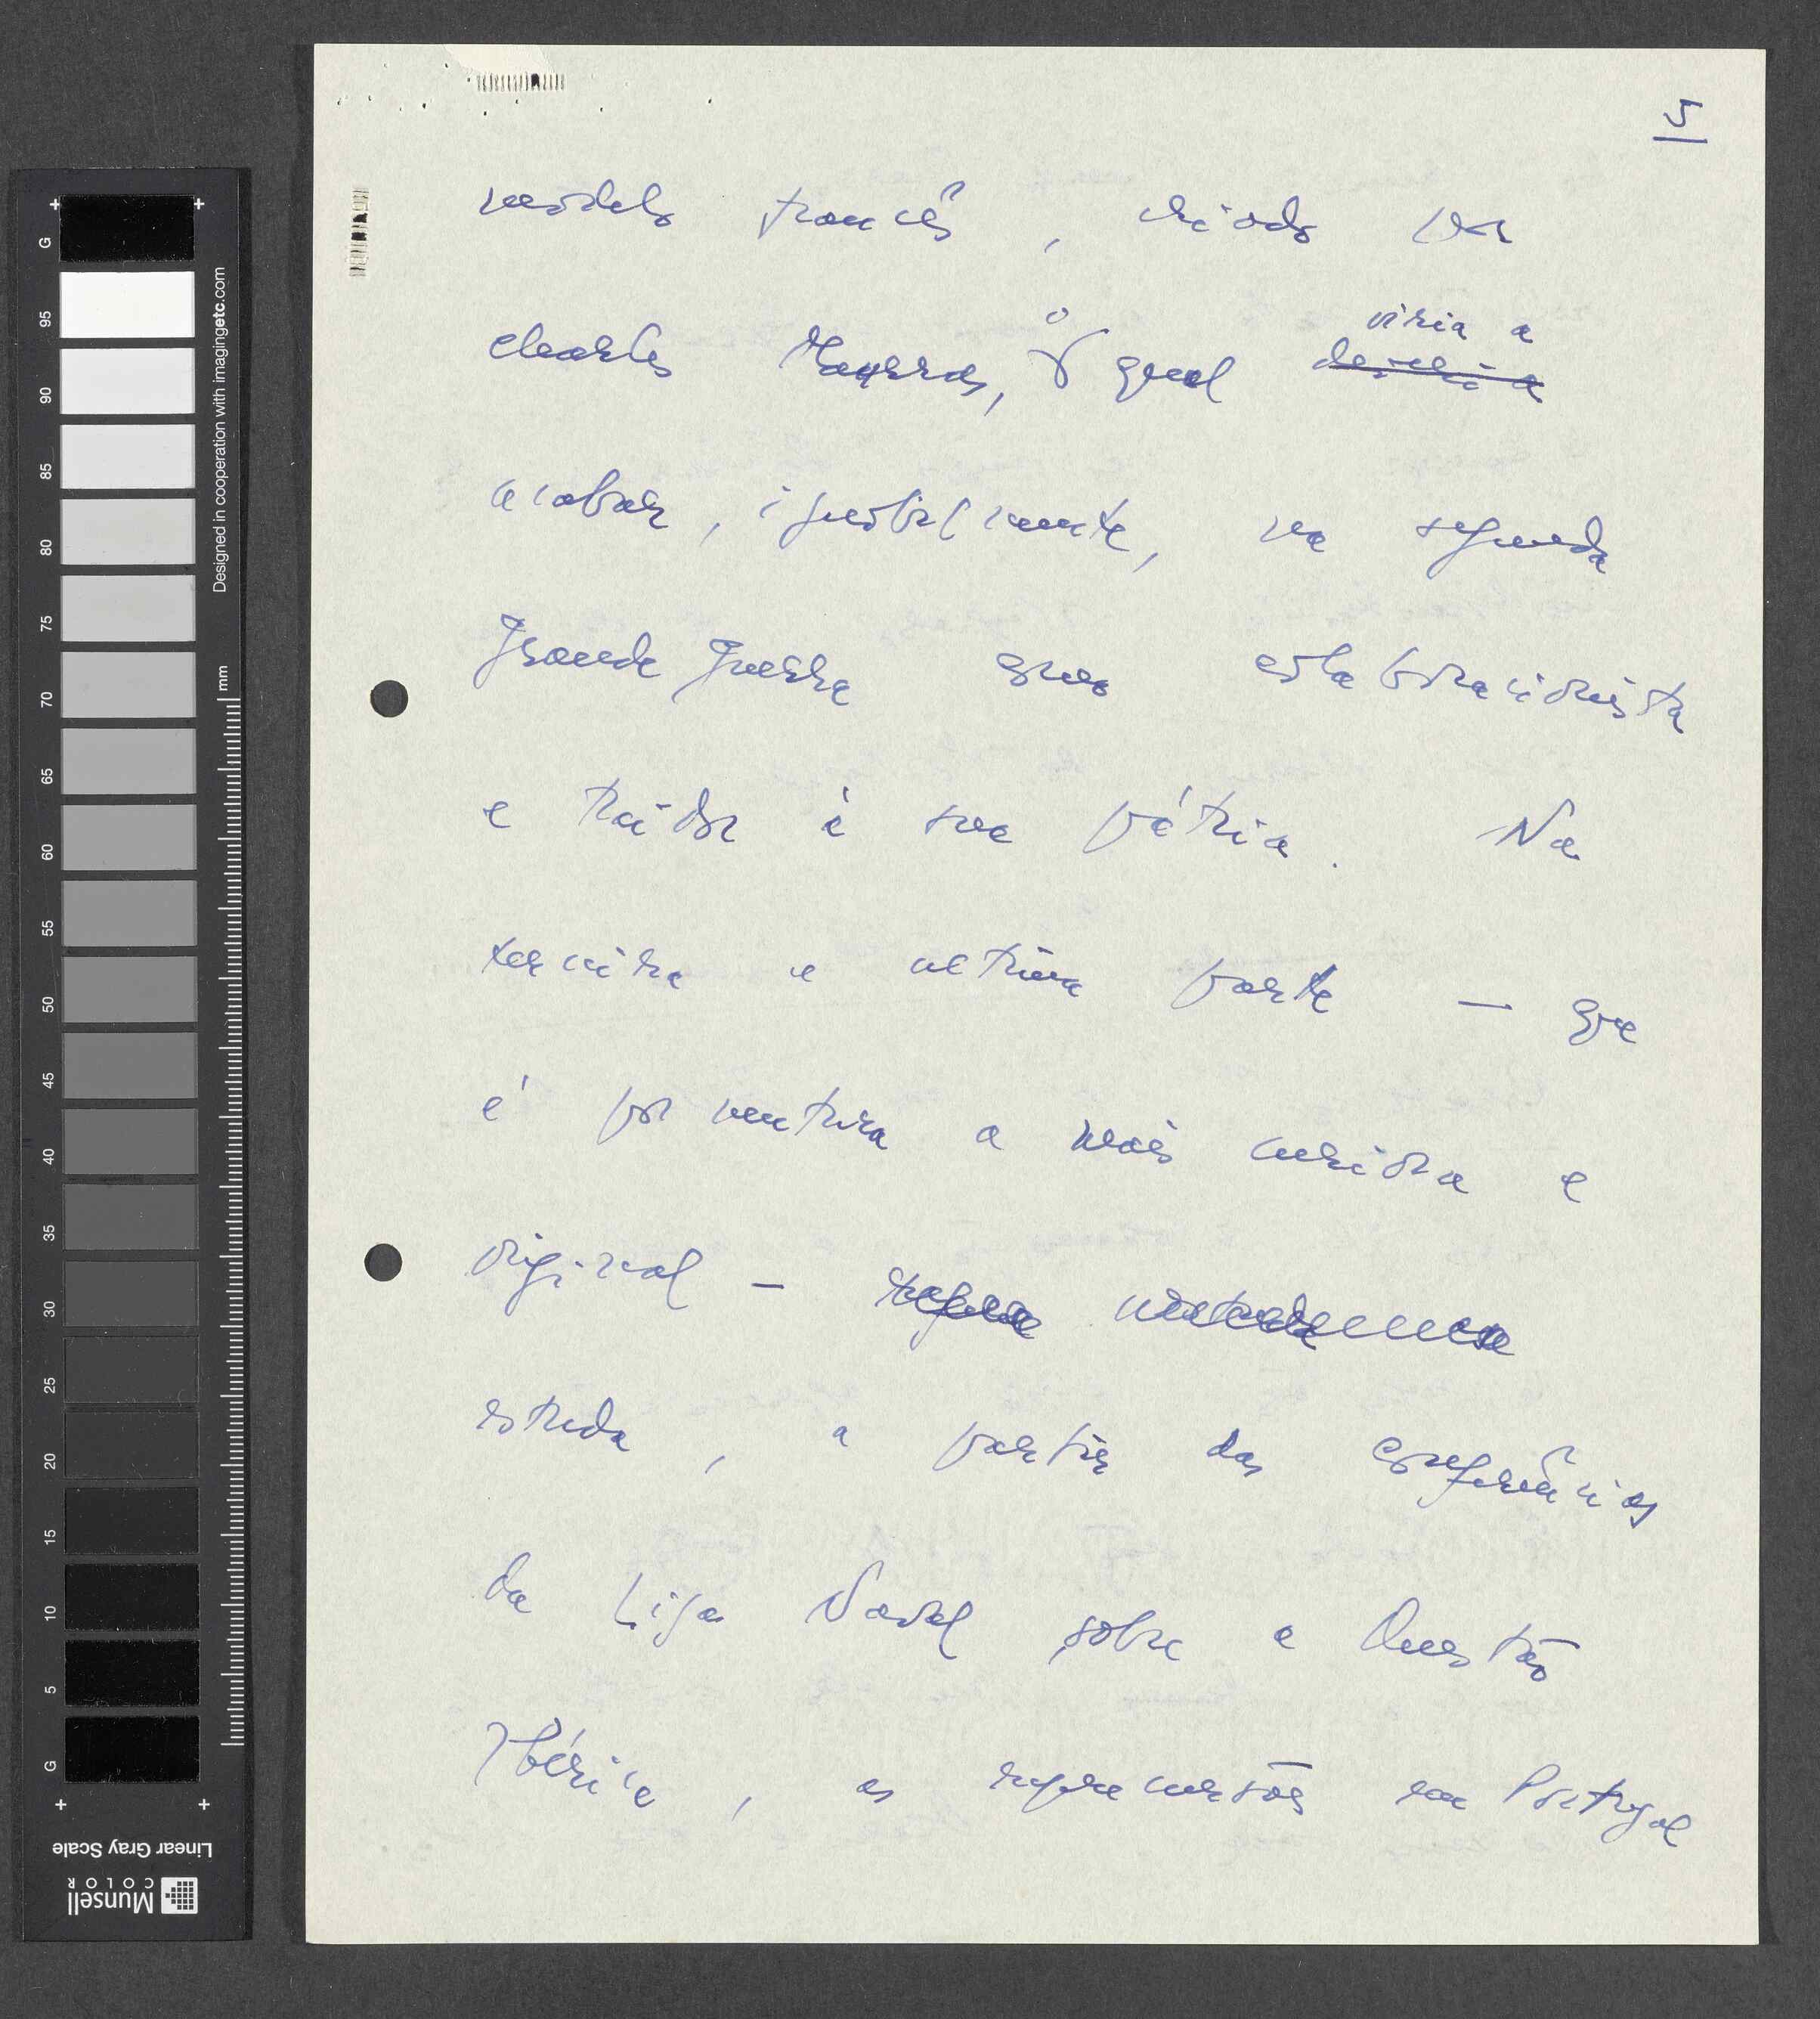 5
modelo francês, criado por
Charles Maurras, o qual viria a
acabar, ignobilmente, na segunda
grande guerra como colaboracionista
e traidor à sua pátria. Na
terceira e última parte — que
é porventura a mais curiosa e
original —
estuda, a partir das conferências
da Liga Naval sobre a Questão
Ibérica, as repercussões em Portugal
G
95
90
85
80
75
70
65
60
55
50
45
40
35
30
25
20
15
10
5
G
mm
Designed in cooperation with imagingetc.com
Linear Gray Scale
Munsell
COLOR